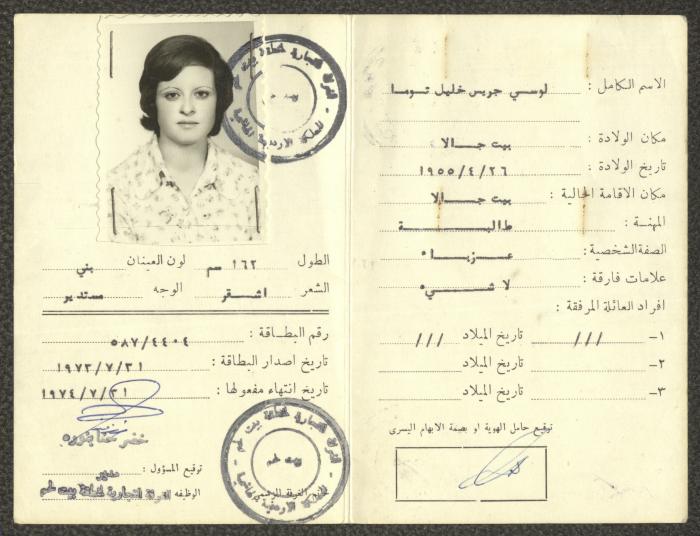 الاسم الكامل : لوسي جريس خليل توما
مكان الولادة : بيت جالا
تاريخ الولادة : ١٩٥٥/٤/٢٦
مكان الاقامة الحالية : بيت جالا
المهنة : طالبة
الصفة الشخصية : عزباء
علامات فارقة : لا شيء
افراد العائلة المرفقة :
١- /// تاريخ الميلاد ///
٢- تاريخ الميلاد
٣- تاريخ الميلاد
توقيع حامل الهوية او بصمة الابهام اليسرى
الغرفة التجارية لمحافظة بيت لحم
بيت لحم
المملكة الاردنية الهاشمية
الطول ١٦٢ سم لون العينان بني
الشعر اشقر الوجه مستدير
رقم البطاقة : ٥٨٧/٤٤٠٤
تاريخ اصدار البطاقة : ١٩٧٣/٧/٣١
تاريخ انتهاء مفعولها : ١٩٧٤/٧/٣١
خضر حنا بنوره
توقيع المسؤول :
مدير
الوظيفه الغرفة التجارية لمحافظة بيت لحم
الغرفة التجارية لمحافظة بيت لحم
بيت لحم
المملكة الاردنية الهاشمية